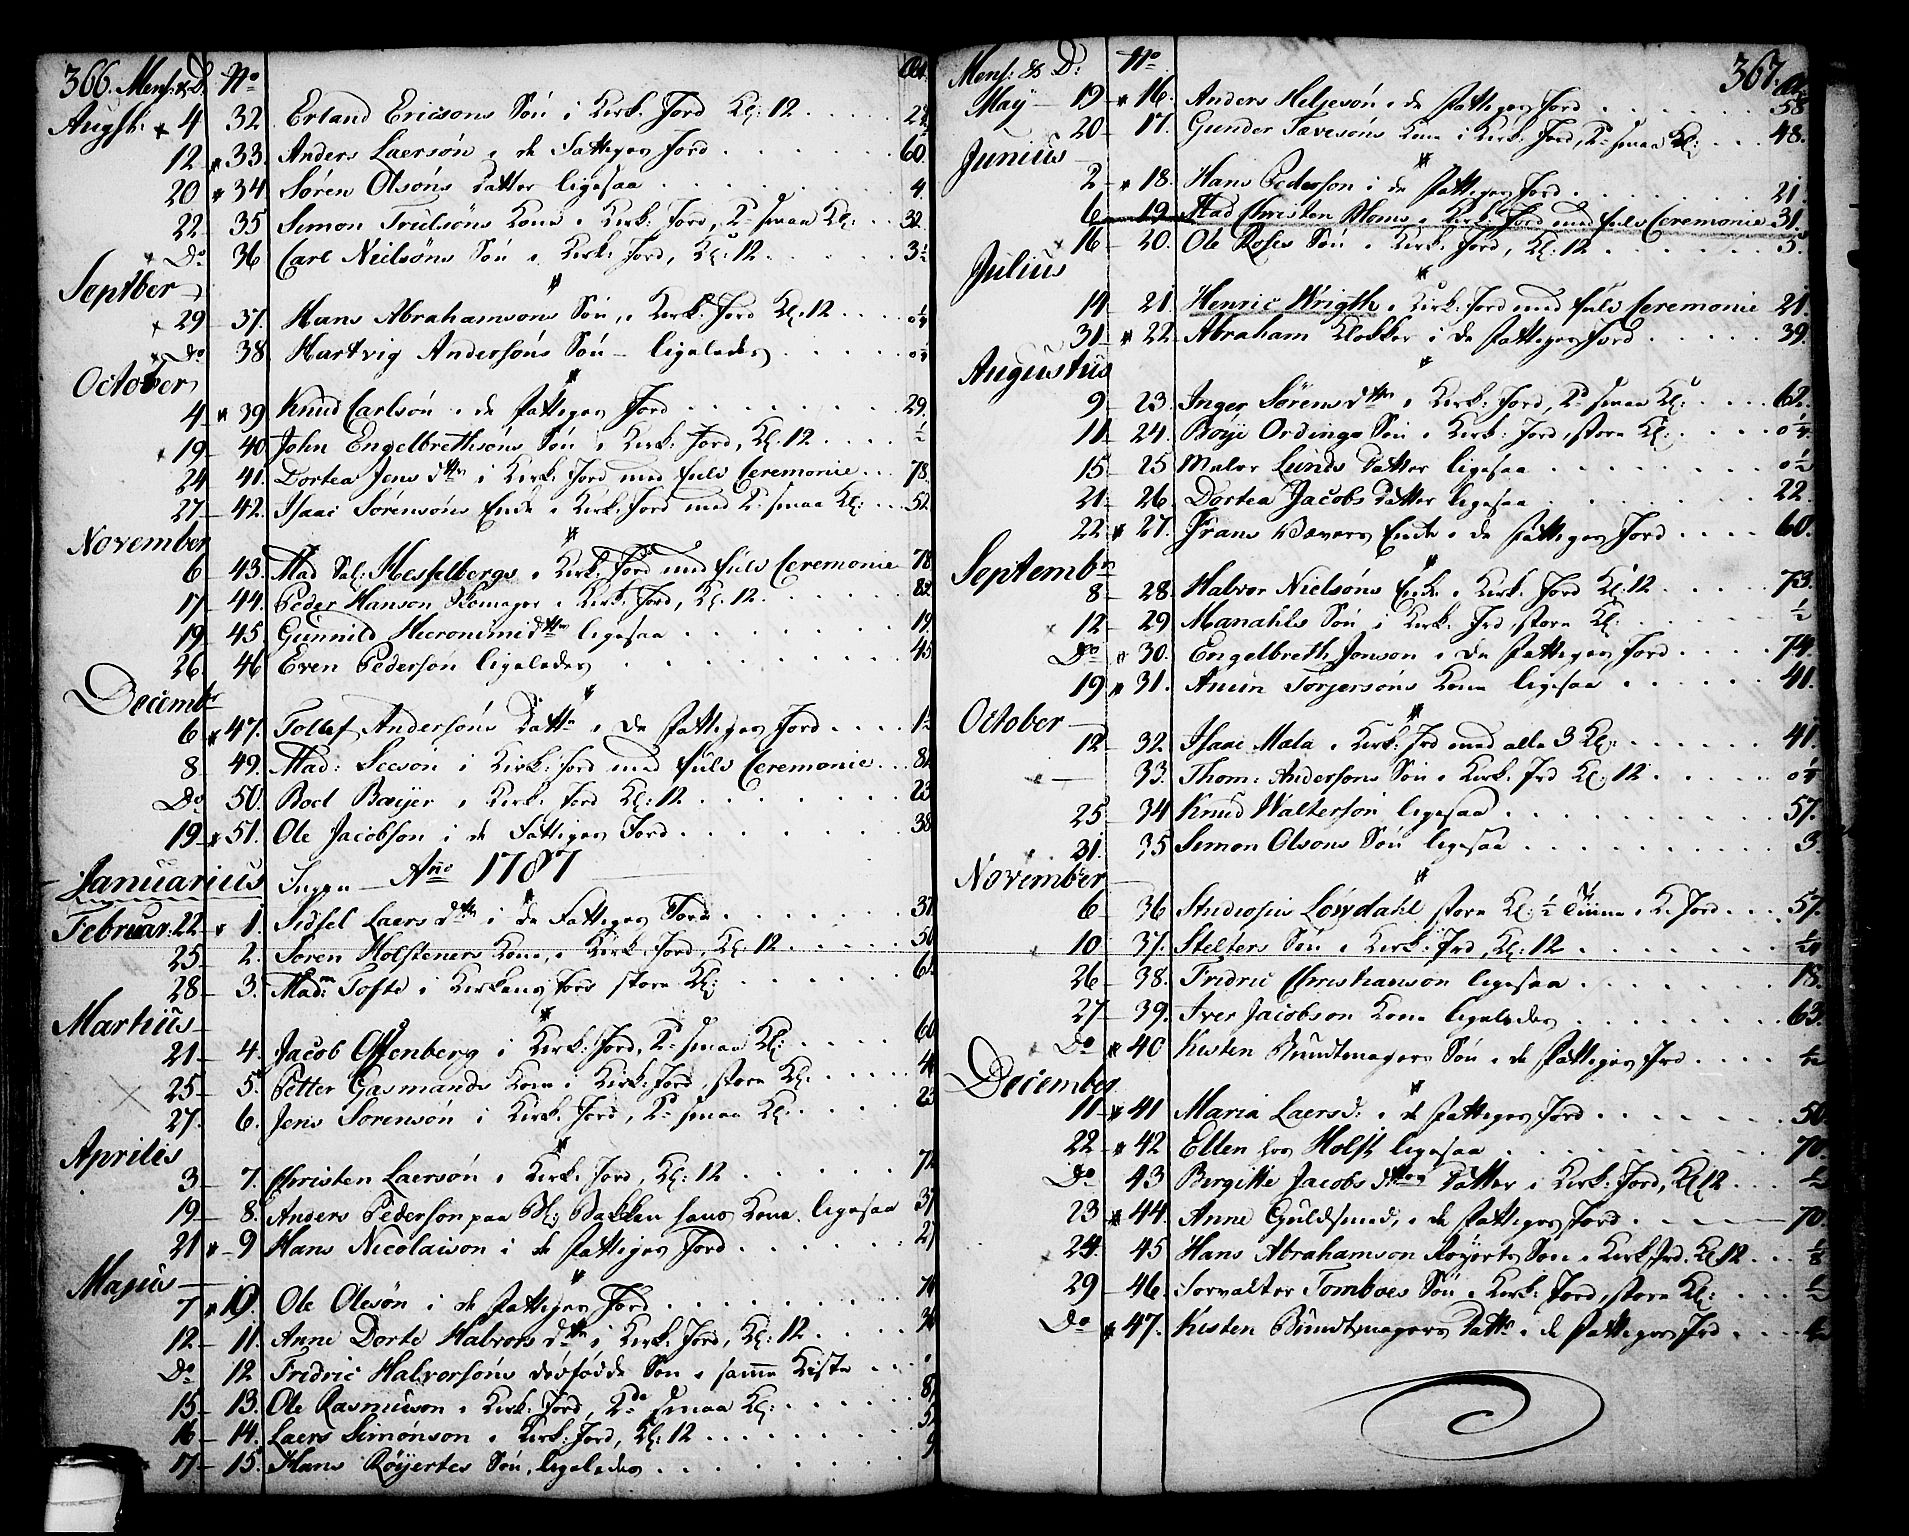 366. Mens: & D. No
Augst: 4 32 Erland Ericsons Søn i Kirk: Jord Kl: 12
12 33. Anders Laersøn i de Fattiges Jord 60.
20 34 Søren Olsøns Datter ligesaa 4.
22 35 Simon Trulsøns Kone i Kirk: Jord, 2de smaa Kl: 32.
Do 36 Carl Nielsøns Søn i Kirk: Jord, Kl: 12 3½
Septber
29 37. Hans Abrahamsons Søn, i Kirk: Jord Kl: 12 0¼
Do 38. Hartvig Andersøns Søn ligeledes
October
4 39 Knud Carlsøn i de Fattiges Jord 29.
19 40. John Engelbrethsøns Søn i Kirk: Jord, Kl: 12 ½
24 41. Dortea Jens dttr i Kirk: Jord med fuld Ceremonie 78.
27 42. Isaac Sørensøns Enke i Kirk: Jord med 2de smaa Kl: 52
November
6 43. Mad Sal: Hesselbergs i Kirk: Jord med fuld Ceremonie 78
17 44. Peder Hanson i Kirk: Jord, Kl: 12
19 45. Gunnild Hieronimi dttr ligesaa 19
26. 46 Even Pedersøn ligeledes 45
Decembr
6 47. Tollef Andersøns Dattr i de Fattiges Jord 1½
8 49. Mad: Seeson i Kirk: Jord med fuld Ceremonie
Do 50. Boel Bøyer i Kirk: Jord Kl: 12 23
19 51. Ole Jacobson i de Fattiges Jord 38
Januarius Ingen Ano 1787
Februar: 22 1. Sidsel Laers dttr i de Fattiges Jord 37
25 2. Søren Holsteners Kone, i Kirk: Jord, Kl: 12 50
28 3. Madm Tofte i Kirkens Jord store Kl:
Martius
21 4. Jacob Offenberg i Kirk: Jord, 2de smaa Kl: 60
25 5. Petter Gasmands Kone i Kirk: Jord, store Kl:
27. 6. Jens Sorensøn i Kirk: Jord, 2de smaa Kl: 23
Aprilis
3 7. Christen Laersøn i Kirk: Jord, Kl: 12 72
19 8. Anders Pederson paa Bl: Bakken hans Kone ligesaa 37
21 9 Hans Nicolaison i de Fattiges Jord 27
Majus
7 10. Ole Olesøn i de Fattiges Jord
12 11. Anne Dorte Halvors dttr i Kirk: Jord, Kl: 12
Do 12 Fridric Halvorsøns dødfødde Søn i samme Kiste
15 13. Ole Rasmuson i Kirk: Jord, 2de smaa Kl:
16 14. Laers Simonson i Kirk: Jord, Kl: 12
17 15. Hans Røyertes Søn, ligeledes
Mens: & D: No 367.
May 19 16. Anders Heljesøn i de Fattiges Jord 58
20 17. Gunder Tævesøns Kone i Kirk: Jord, 2de smaa Kl: 48.
Junius
2 18. Hans Pederson i de Fattiges Jord 21.
6 19. Mad Christen Bloms i Kirk: Jord med fuld Ceremonie 31.
16 20. Ole Roses Søn i Kirk: Jord, Kl: 12 3.
Julius
14 21 Henric Wrigth i Kirk: Jord med fuld Ceremonie 21.
31 22. Abraham Klokker i de Fattiges Jord 39.
Augustus
9 23. Inger Sørens dttr i Kirk: Jord, 2de smaa Kl: 62.
11 24. Boye Ordings Søn i Kirk: Jord, store Kl: 0¼.
15 25 Lunds Datter ligesaa 0½
21 26. Dortea Jacobs Datter ligesaa 22.
22 27. Frans Vævers Enke i de Fattiges Jord 60.
Septembr
8 28. Halvor Nielsøns Enke i Kirk: Jord Kl: 12 73.
12 29 Manahls Søn i Kirk: Jrd, store Kl: ½
Do 30. Engelbreth Jonson i de Fattiges Jord 74.
19 31. Torjersøns Kone ligesaa 41.
October
12 32. Isaac Mala i Kirk: Jrd med alle 3 Kl: 41.
33. Thom: Andersons Søn i Kirk: Jrd Kl: 12 0¼
25 34 Knud Walterson ligesaa 57.
31. 35 Simon Olsons Søn ligesaa 3.
November
6 36 Studiosus Lowdahl store Kl: ½ Time i K. Jord 57.
10 37. Stelters Søn i Kirk: Jrd, Kl: 12
26 38. Fridric Christianson ligesaa 18.
27 39. Iver Jacobson Kone ligeledes 63.
Do 40 Kisten Bundtmagers Søn i de Fattiges Jrd ½
December
11 41 Maria Laersd: i de Fattiges Jord 50.
22 42 Ellen Holst ligesaa 70.
Do 43 Bergitte Jacobs dtters Datter i Kirk: Jord, Kl 12 ½
23 44. Anne Guldsmed, i de Fattiges Jord 70.
24. 45 Hans Abrahamson Røyerts Søn i Kirk Jrd. Kl: 12 ⅛
29 46. Forvalter Tomboes Søn i Kirk: Jord, store Kl: ½
Do 47. Kisten Bundtmagers Dattr i de Fattiges Jrd